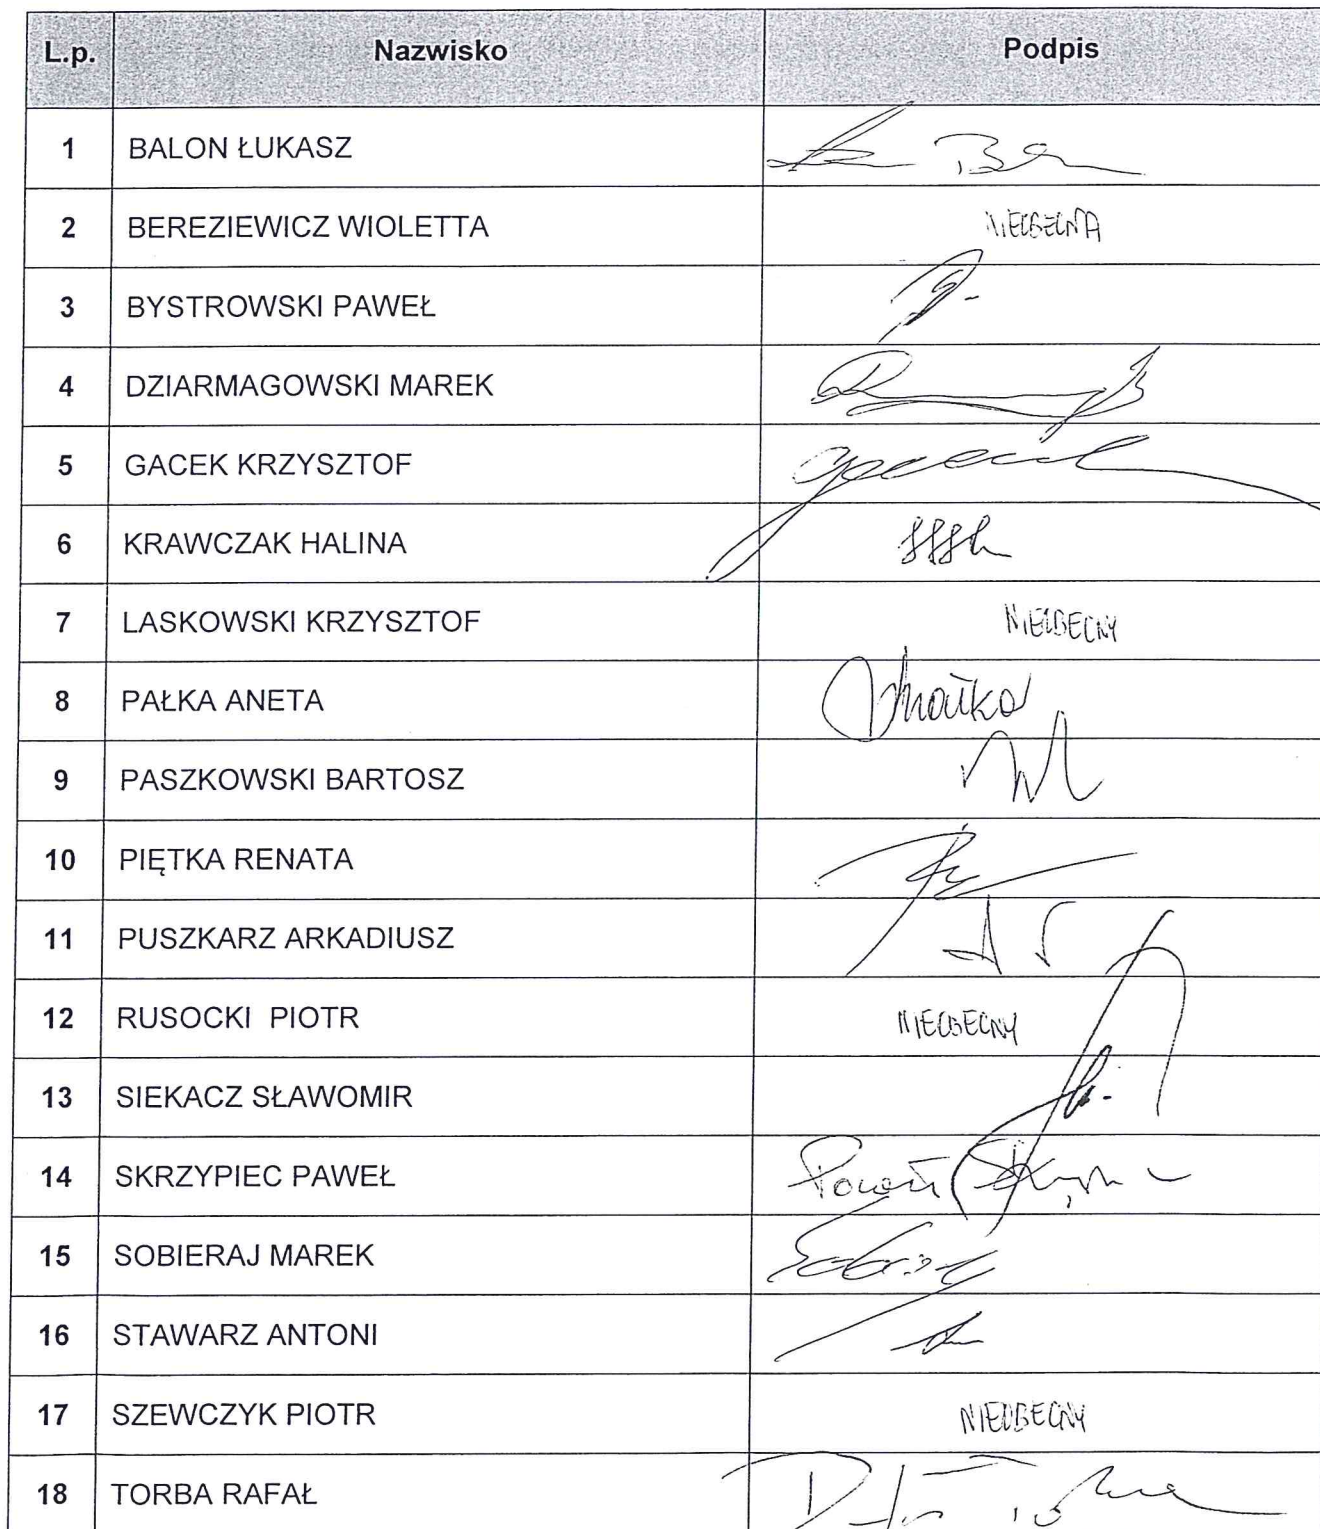 L.p. Nazwisko Podpis
1 BALON ŁUKASZ
2 BEREZIEWICZ WIOLETTA NIEOBECNA
3 BYSTROWSKI PAWEŁ
4 DZIARMAGOWSKI MAREK
5 GACEK KRZYSZTOF
6 KRAWCZAK HALINA
7 LASKOWSKI KRZYSZTOF NIEOBECNY
8 PAŁKA ANETA
9 PASZKOWSKI BARTOSZ
10 PIĘTKA RENATA
11 PUSZKARZ ARKADIUSZ
12 RUSOCKI PIOTR NIEOBECNY
13 SIEKACZ SŁAWOMIR
14 SKRZYPIEC PAWEŁ
15 SOBIERAJ MAREK
16 STAWARZ ANTONI
17 SZEWCZYK PIOTR NIEOBECNY
18 TORBA RAFAŁ